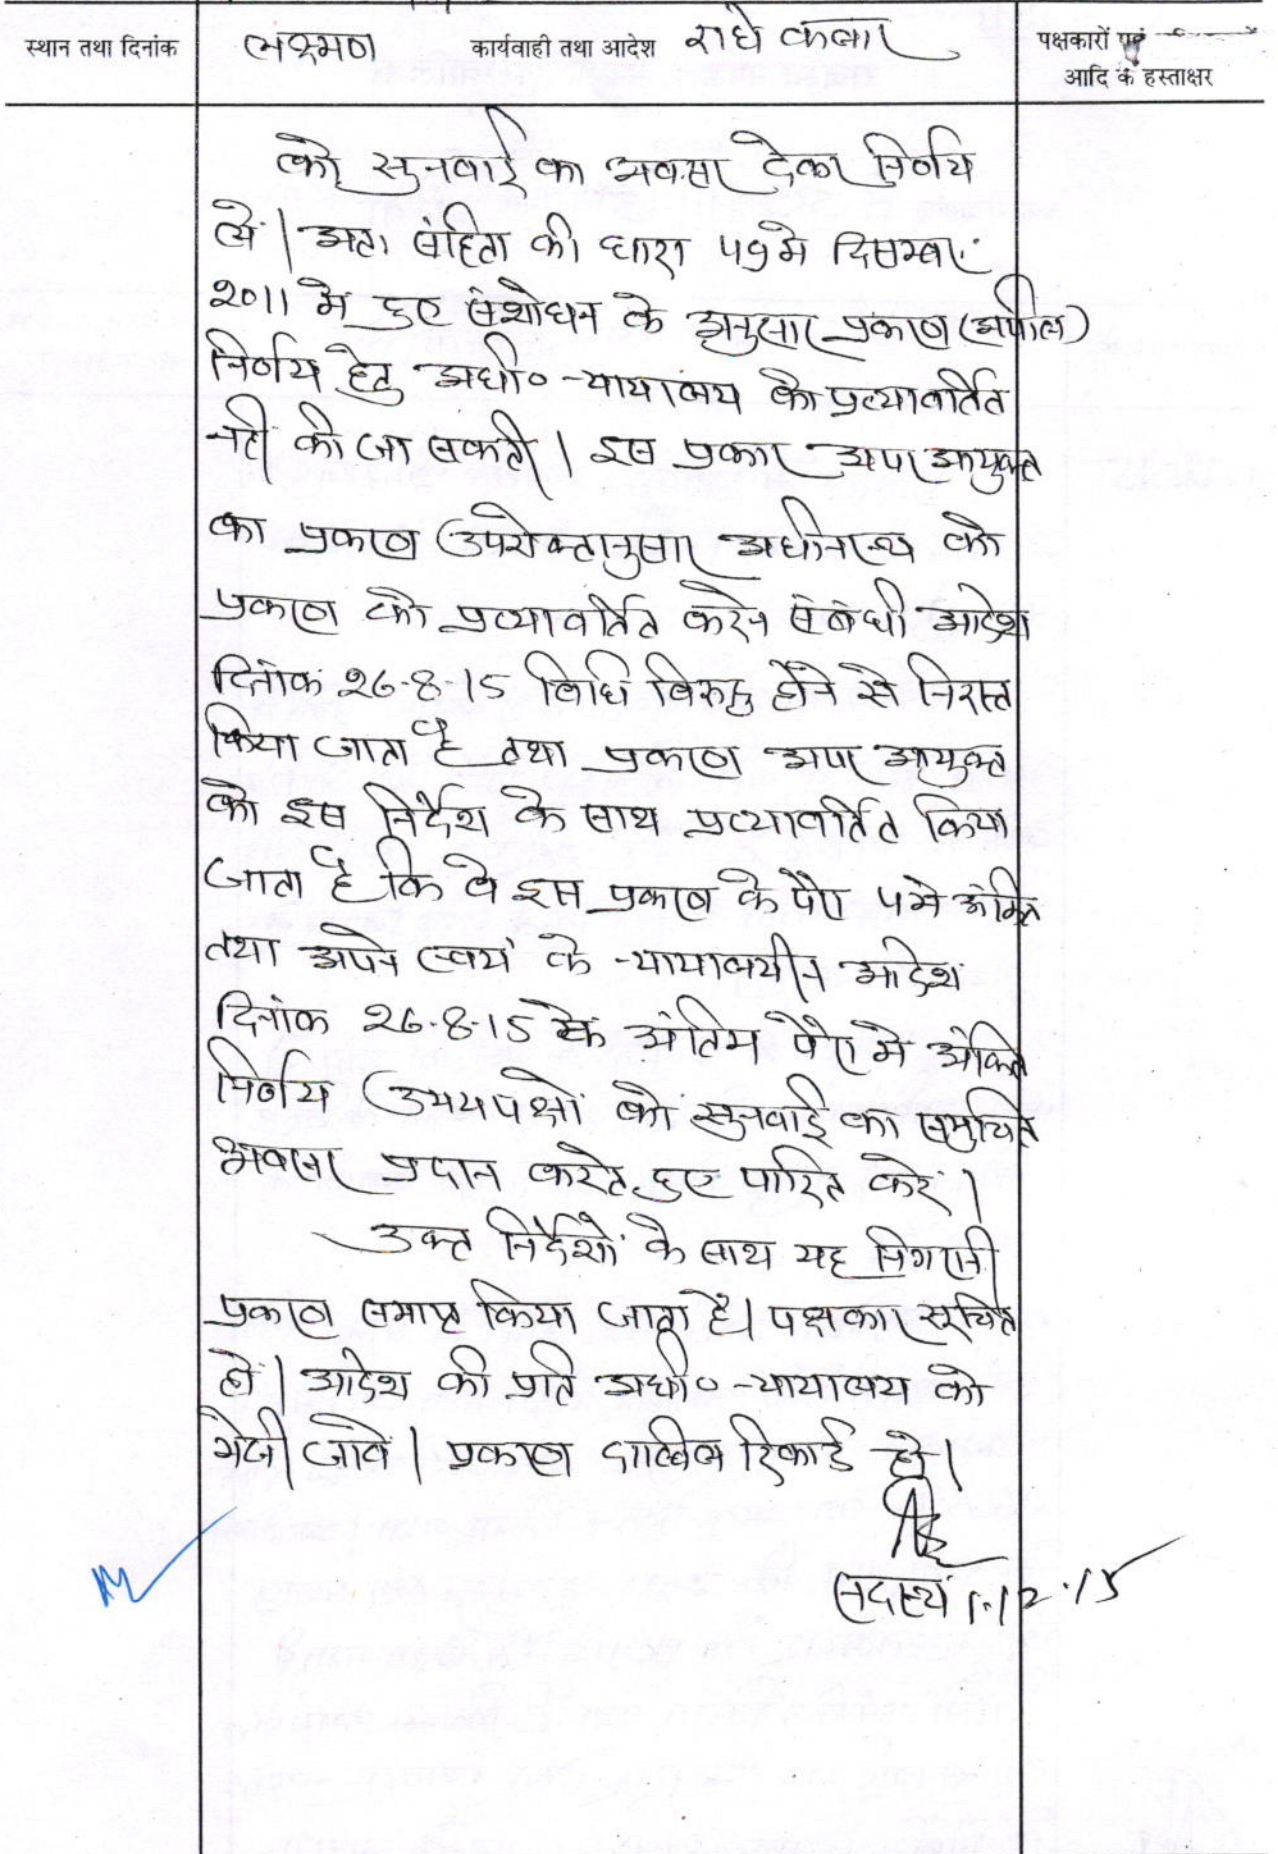 स्थान तथा दिनांक लक्ष्मण कार्यवाही तथा आदेश राधे पक्षकारों एवं
आदि के हस्ताक्षर
को सुनवाई का अवसर देकर निर्णय
लें। अतः संहिता की धारा 49 में दिसम्बर
2011 में हुए संशोधन के अनुसार प्रकरण (अपील)
निर्णय हेतु अधी० न्यायालय को प्रत्यावर्तित
नहीं की जा सकती। इस प्रकार अपर आयुक्त
का प्रकरण उपरोक्तानुसार अधीनस्थ को
प्रकरण को प्रत्यावर्तित करने संबंधी आदेश
दिनांक 26-8-15 विधि विरुद्ध होने से निरस्त
किया जाता है तथा प्रकरण अपर आयुक्त
को इस निर्देश के साथ प्रत्यावर्तित किया
जाता है कि वे इस प्रकरण के पैरा 4 में अंकित
तथा अपने स्वयं के न्यायालयीन आदेश
दिनांक 26-8-15 के अंतिम पैरा में अंकित
निर्णय उभयपक्षों को सुनवाई का समुचित
अवसर प्रदान करते हुए पारित करें।
उक्त निर्देशों के साथ यह निगरानी
प्रकरण समाप्त किया जाता है। पक्षकार सूचित
हों। आदेश की प्रति अधी० न्यायालय को
भेजी जावे। प्रकरण दाखिल रिकार्ड हो।
सदस्य 1.12.15